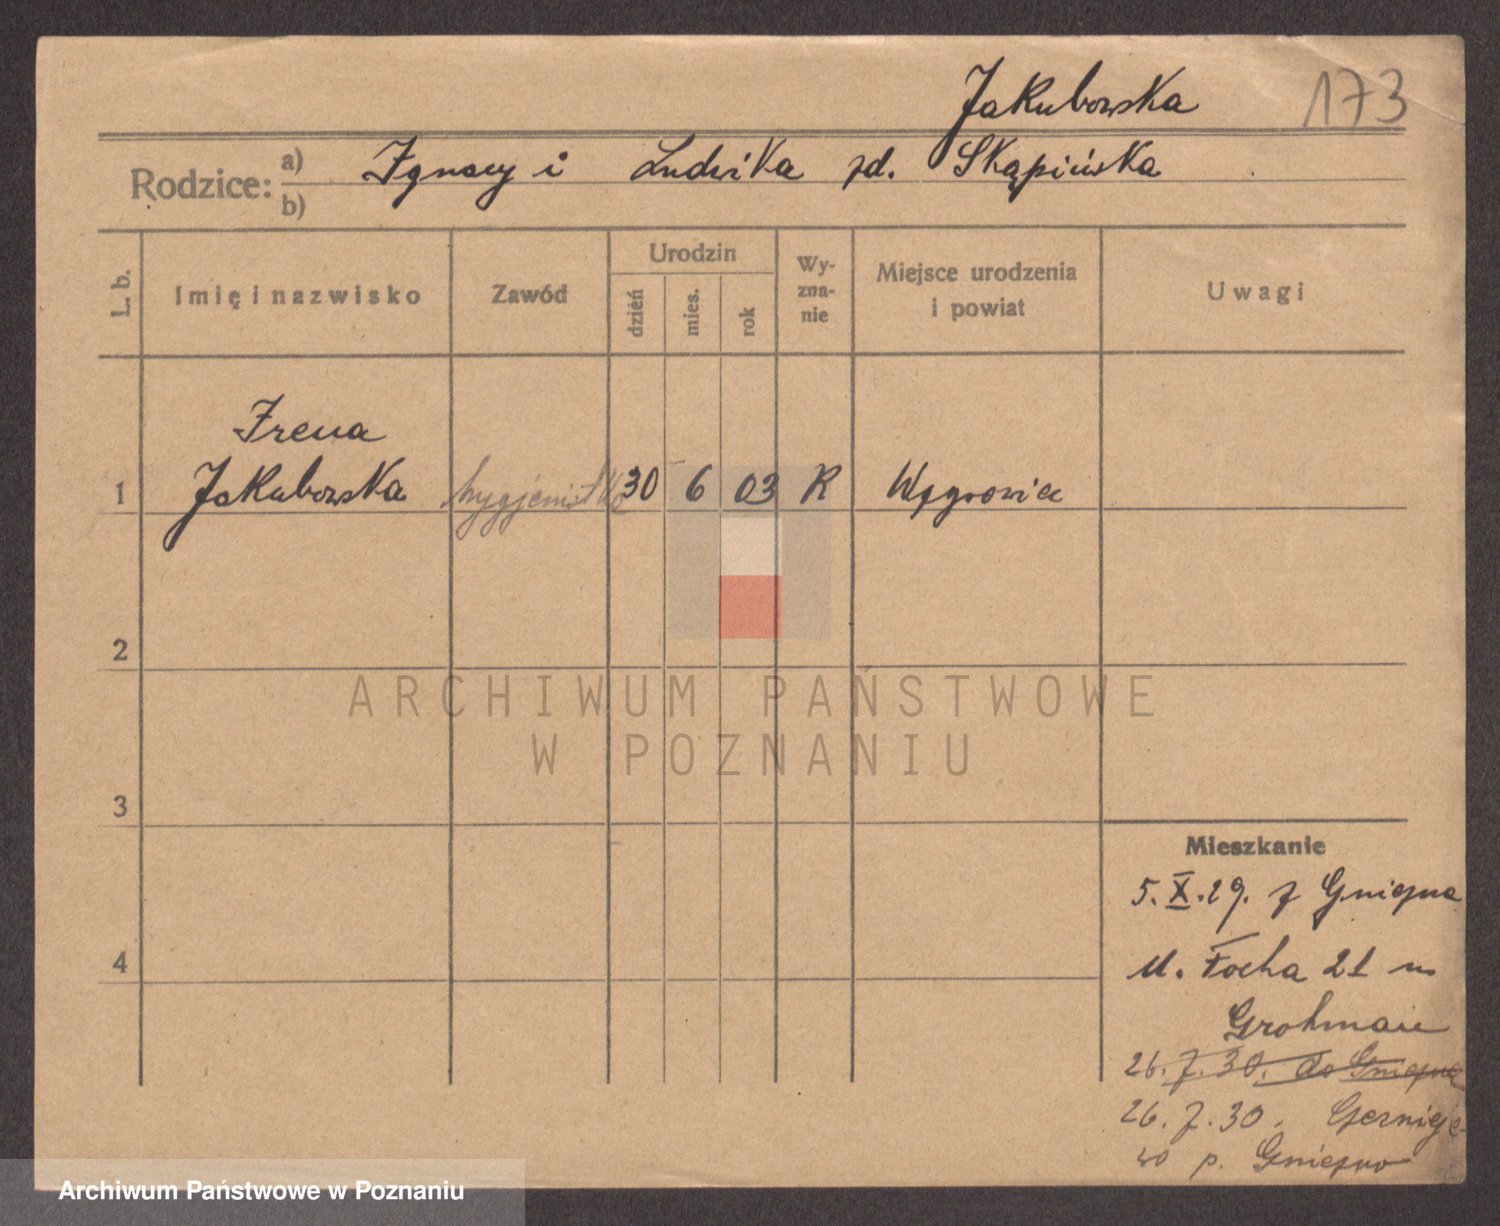 Jakubowska 173
Rodzice: a) Ignacy i Ludwika zd. Skąpińska
b)
L. b. Imię i nazwisko Zawód Urodzin Wy-zna-nie Miejsce urodzenia i powiat Uwagi
dzień mies. rok
Irena
1 Jakubowska hygjenistka 30 6 03 R Wągrowiec
2
ARCHIWUM PAŃSTWOWE
W POZNANIU
3
Mieszkanie
5.X.29. z Gniezna
4
ul. Focha 21 m
26.7.30. do Gniezna
26.7.30.
p. Gniezno
Archiwum Państwowe w Poznaniu